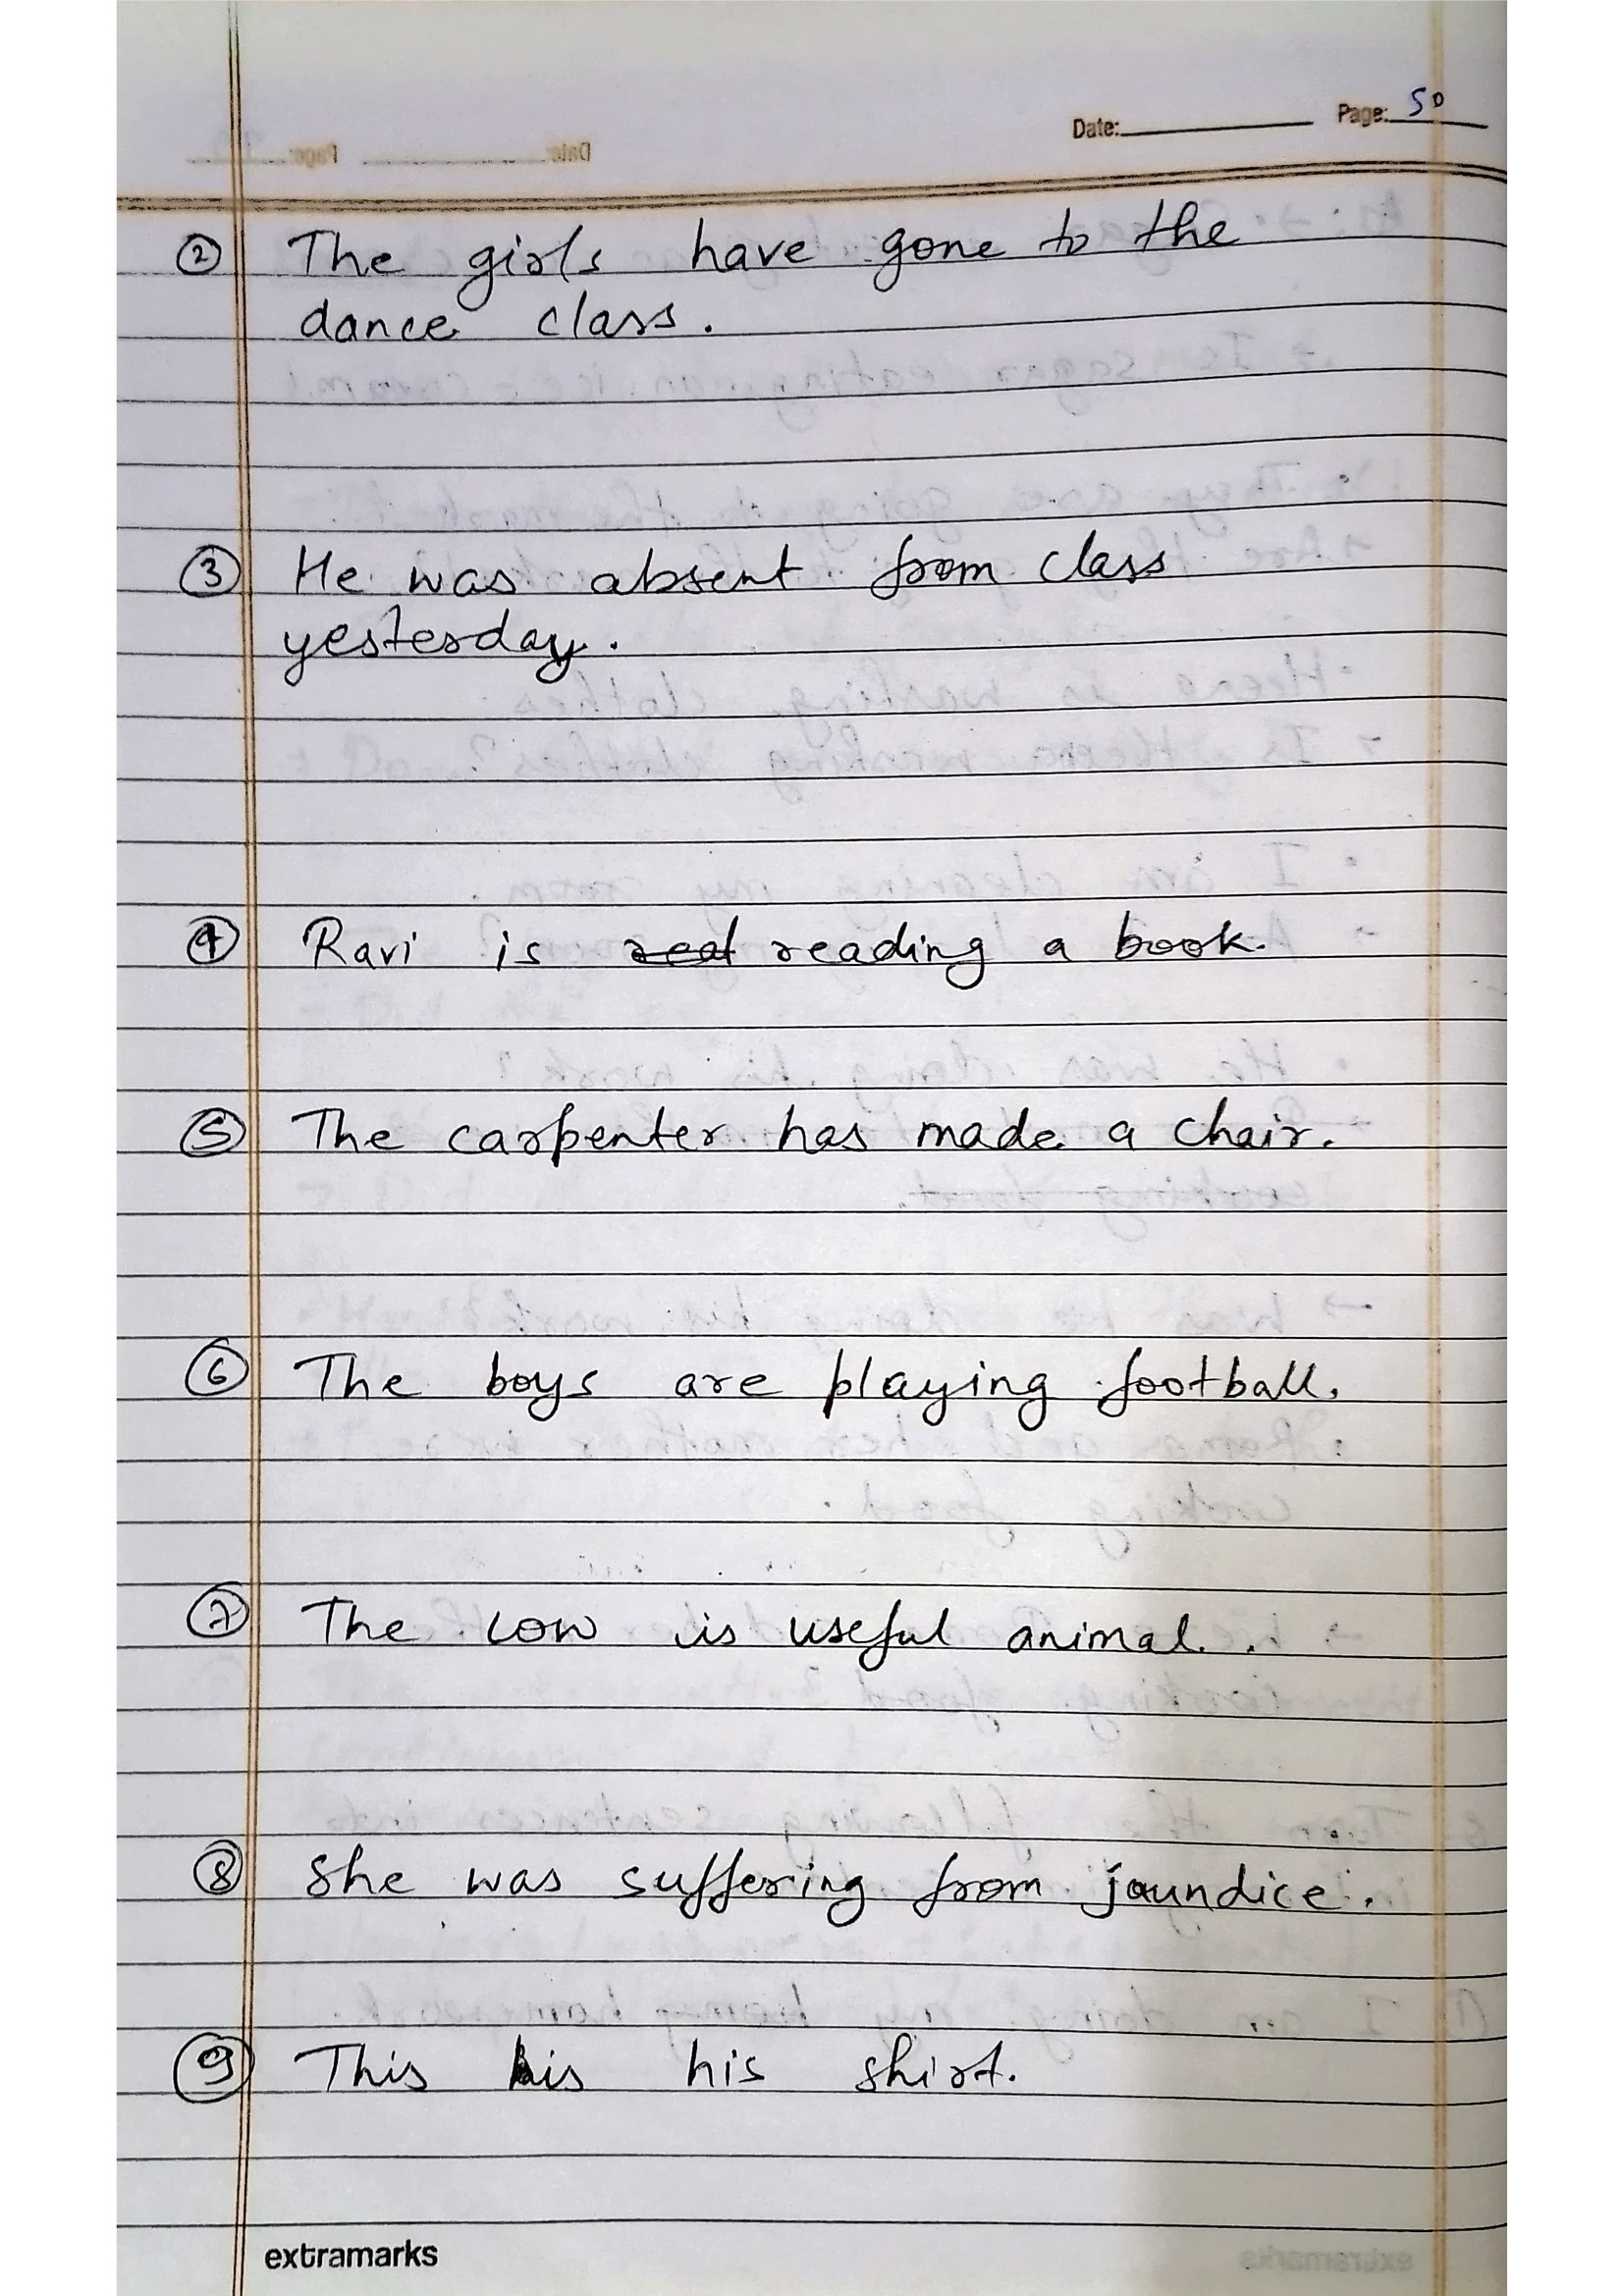 Date: Page: 50
② The girls have gone to the
dance class.
③ He was absent from class
yesterday.
④ Ravi is reading a book.
⑤ The carpenter has made a chair.
⑥ The boys are playing football.
⑦ The cow is useful animal.
⑧ She was suffering from jaundice.
⑨ This is his shirt.
extramarks